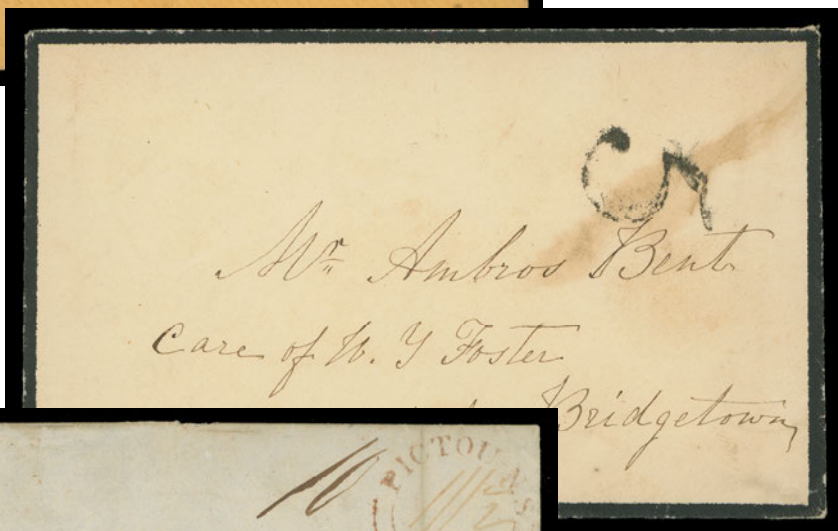 5
Mr Ambros Bent
Care of W. Y Foster
Bridgetown
10
PICTOU N.S